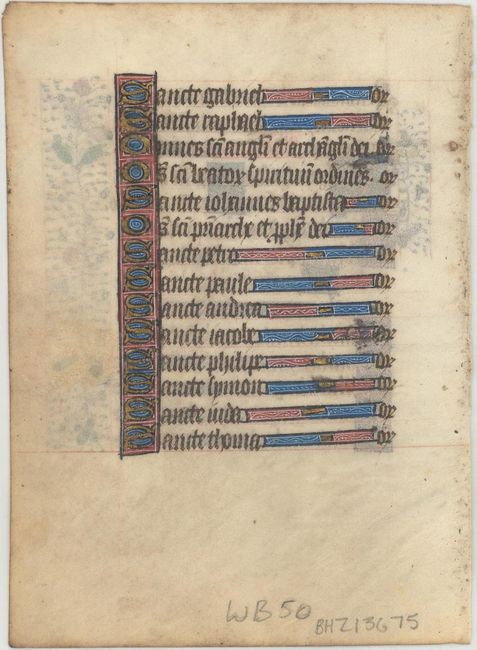 Sancte gabriel or
Sancte raphael or
Omnes sci angli et archāgli dei or
Oēs sci beatoꝝ spirituū ordines. or
Sancte iohannes baptista or
Oēs sci pr̄iarche et pphē dei or
Sancte petre or
Sancte paule or
Sancte andrea or
Sancte iacobe or
Sancte philipe or
Sancte symon or
Sancte iuda or
Sancte thoma or
WB 50
BHZ13675